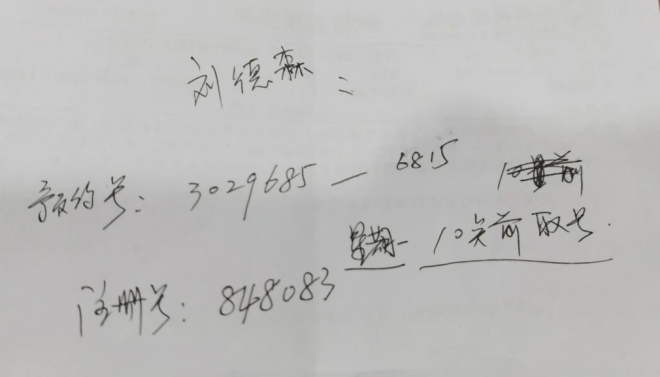 刘德森：
预约号：3029685—6815
星期一 10点前取号.
注册号：848083